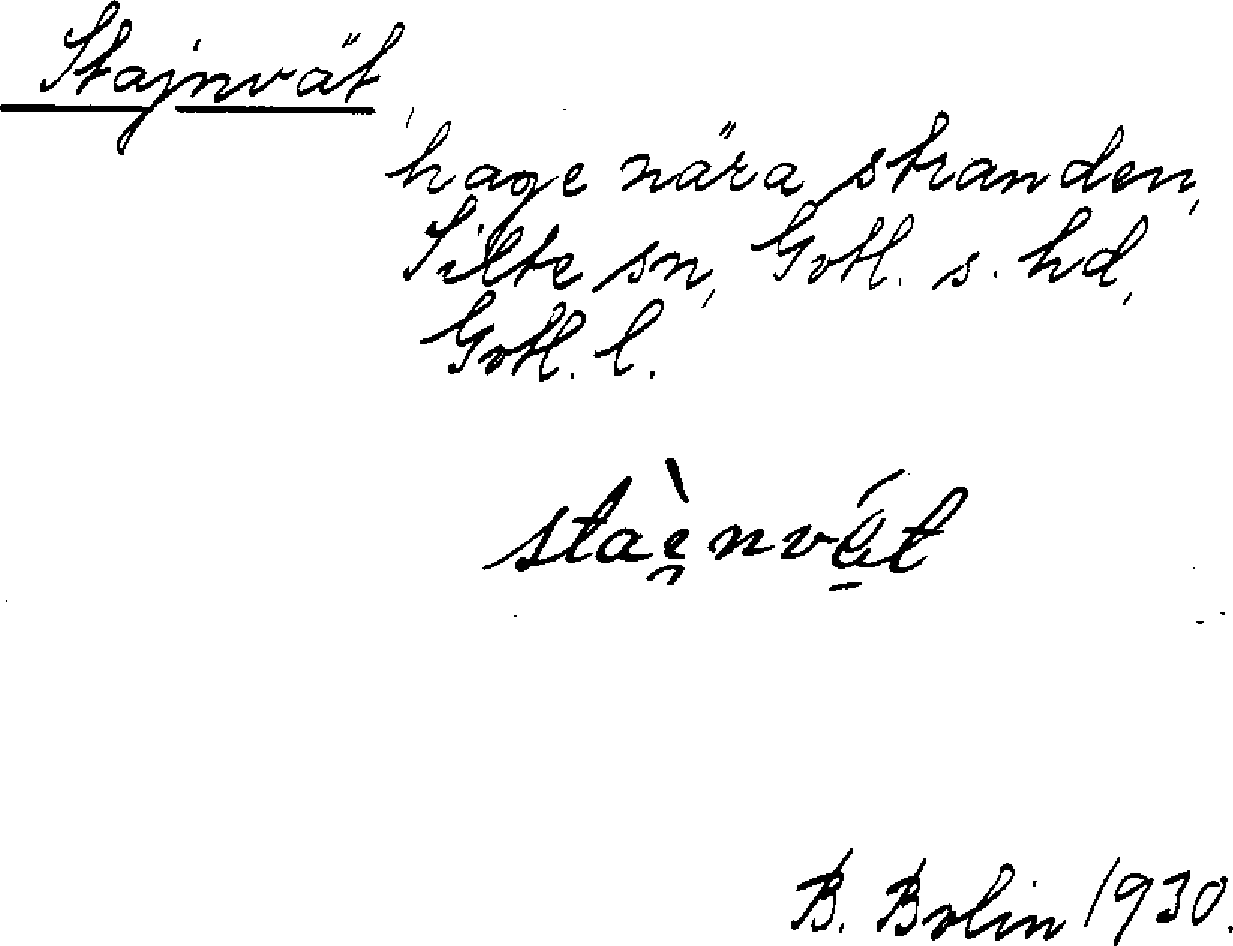 Stajnvät,
hage nära stranden,
Silte sn, Gotl. s. hd,
Gotl. l.
staènvát
B. Bolin 1930.